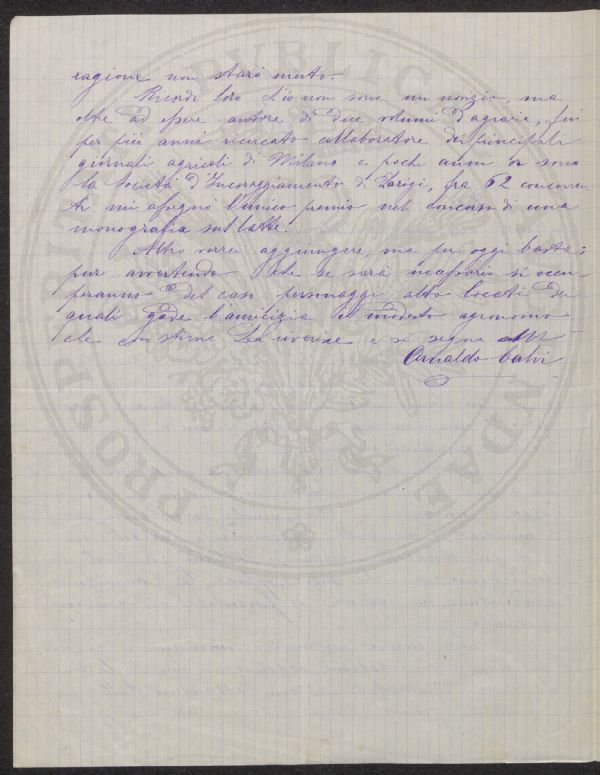 ragione non starò muto.
Ricordi loro ch'io non sono un nonzio, ma
oltre ad essere autore di due volumi d'agraria, fui
per più anni ricercato collaboratore dei principali
giornali agricoli di Milano e pochi anni or sono
la Società d'Incoraggiamento di Parigi, fra 62 concorren
ti mi assegnò l'unico premio nel concorso di una
monografia sul latte.
Altro vorrei aggiungere, ma per oggi basta;
pur avvertendo che se sarà necessario si occu
peranno del caso personaggi alto locati dei
quali gode l'amicizia il modesto agronomo
che con stima La riverisce e si segna
Arnaldo Calvi